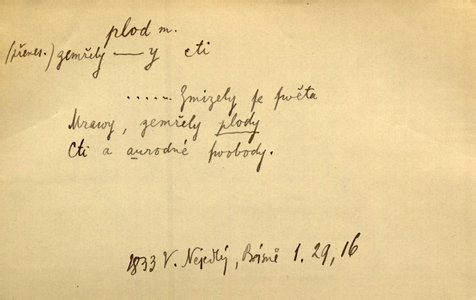 plod m.
(přenes.) zemřely —— y cti
...... Zmizely se swěta
Mrawy, zemřely plody
Cti a aurodné swobody.
1833 V. Nejedlý, Básně 1. 29, 16